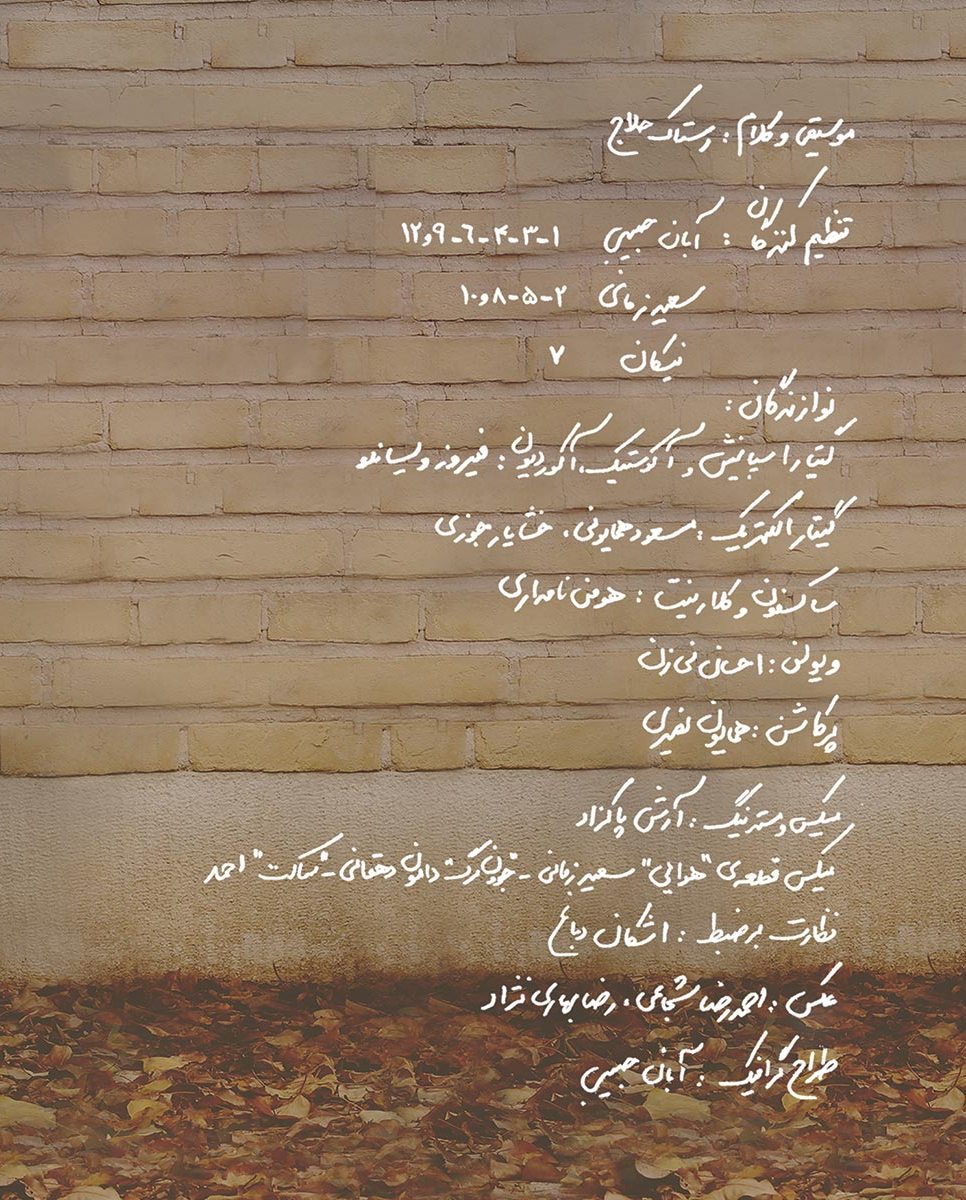 موسیقی و کلام : رستاک حلاج
تنظیم کنندگان : آبان حبیبی ۱-۳-۴-۶-۹و۱۲
سعید زمانی ۲-۵-۸و۱۰
نیکان ۷
نوازندگان :
گیتار اسپانیش و آکوستیک، آکوردیون : فیروز ویسانلو
گیتار الکتریک : مسعود همایونی، خشایار حوزی
ساکسفون و کلارینت : هومن نامداری
ویولن : احسان نی زن
پرکاشن : همایون نصیری
میکس و مسترنگ : آرش پاکزاد
میکس قطعه‌ی "هوایی" سعید زمانی - "جوون مرگ" دامون دهقانی - "ساکت" احمد
نظارت بر ضبط : اشکان دباغ
عکس : احمدرضا شجاعی، رضا بهاری نژاد
طراح گرافیک : آبان حبیبی